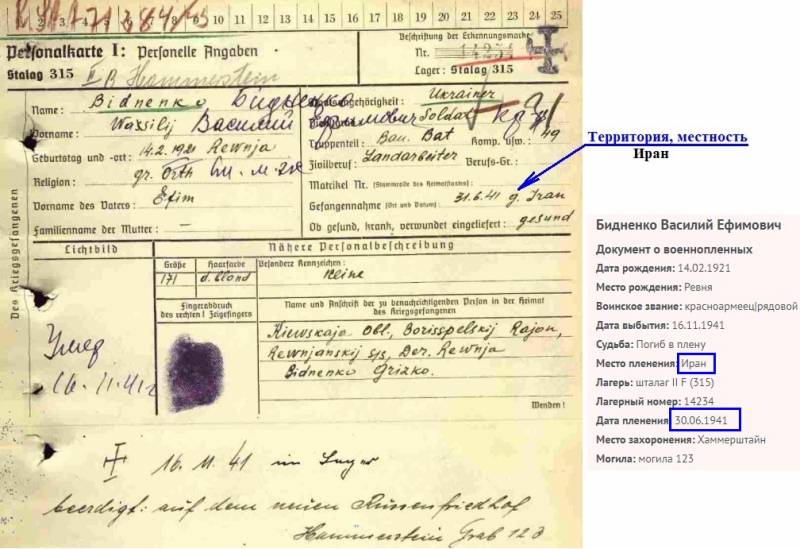 2 3 4 5 6 7 8 9 10 11 12 13 14 15 16 17 18 19 20 21 22 23 24 25
Personalkarte I: Personelle Angaben
Stalag 315 II B Hammerstein
Beschriftung der Erkennungsmarke
Nr. 14234
Lager: Stalag 315
Des Kriegsgefangenen
Name: Bidnenko Бидненко
Vorname: Wassilij Василий Ефимович
Geburtstag und -ort: 14.2.1921 Rewnja
Religion: gr. Orth
Vorname des Vaters: Efim
Familienname der Mutter: –
Staatsangehörigkeit: Ukrainer
Soldat
Truppenteil: Bau. Bat Komp. usw.: 49
Zivilberuf: Landarbeiter Berufs-Gr.:
Matrikel Nr. (Stammrolle des Heimatstaates):
Gefangennahme (Ort und Datum): 31.6.41 g. Iran
Ob gesund, krank, verwundet eingeliefert: gesund
Lichtbild
Nähere Personalbeschreibung
Größe Haarfarbe Besondere Kennzeichen:
171 d. blond Keine
Fingerabdruck
des rechten! Zeigefingers
Name und Anschrift der zu benachrichtigenden Person in der Heimat
des Kriegsgefangenen
Kiewskaja Obl, Borisspelskij Rajon,
Rewnjanskij s/s, Der. Rewnja
Bidnenko Grizko.
Wenden!
16. 11. 41 im Lager
beerdigt: auf dem neuen Russenfriedhof
Hammerstein Grab 123
Территория, местность
Иран
Бидненко Василий Ефимович
Документ о военнопленных
Дата рождения: 14.02.1921
Место рождения: Ревня
Воинское звание: красноармеец|рядовой
Дата выбытия: 16.11.1941
Судьба: Погиб в плену
Место пленения: Иран
Лагерь: шталаг II F (315)
Лагерный номер: 14234
Дата пленения: 30.06.1941
Место захоронения: Хаммерштайн
Могила: могила 123